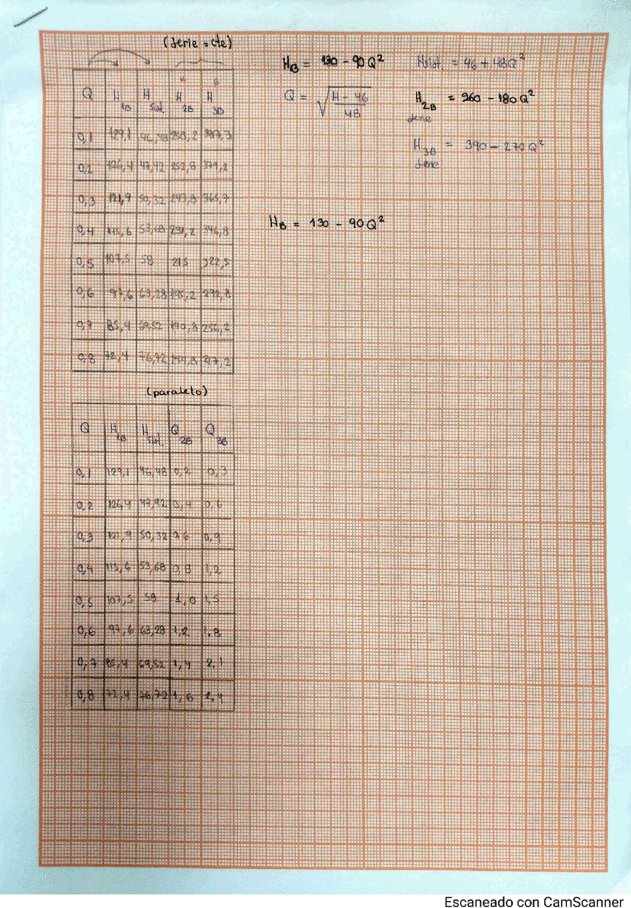 (serie = cte)
H_B = 130 - 90Q²
H sist. = 46 + 48Q²
Q = √((H - 46)/48)
H_2B serie = 260 - 180Q²
H_3B serie = 390 - 270Q²
H_B = 130 - 90Q²
Q H_1B H sist. H_2B H_3B
0,1 129,1 46,48 258,2 387,3
0,2 126,4 47,92 252,8 379,2
0,3 121,9 50,32 243,8 365,7
0,4 115,6 53,68 231,2 346,8
0,5 107,5 58 215 322,5
0,6 97,6 63,28 195,2 292,8
0,7 85,4 69,52 170,8 256,2
0,8 72,4 76,72 144,8 217,2
(paralelo)
Q H_1B H sist. Q_2B Q_3B
0,1 129,1 46,48 0,2 0,3
0,2 126,4 47,92 0,4 0,6
0,3 121,9 50,32 0,6 0,9
0,4 115,6 53,68 0,8 1,2
0,5 107,5 58 1,0 1,5
0,6 97,6 63,28 1,2 1,8
0,7 85,4 69,52 1,4 2,1
0,8 72,4 76,72 1,6 2,4
Escaneado con CamScanner